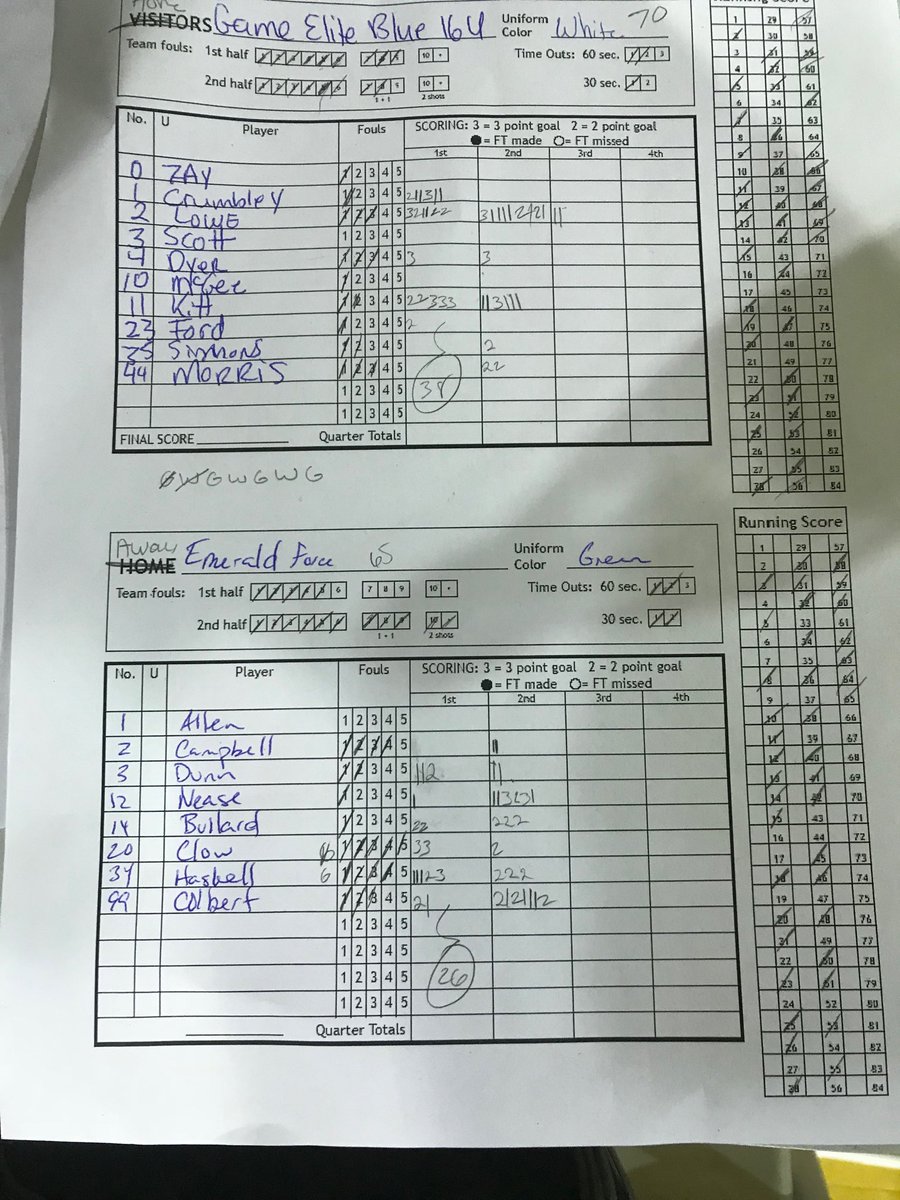 Home Running Score
VISITORS Game Elite Blue 16U Uniform Color White 70
Team fouls: 1st half 1 2 3 4 5 6 7 8 9 10 + Time Outs: 60 sec. 1 2 3
2nd half 1 2 3 4 5 6 7 8 9 10 + 30 sec. 1 2
1 + 1 2 shots
No. U Player Fouls SCORING: 3 = 3 point goal 2 = 2 point goal
= FT made = FT missed
1st 2nd 3rd 4th
0 ZAY 1 2 3 4 5
1 Crumbley 1 2 3 4 5 211311
2 LOWE 1 2 3 4 5
3 Scott 1 2 3 4 5
4 Dyer 1 2 3 4 5 3 3
10 McGee 1 2 3 4 5
11 Kitt 1 2 3 4 5 22333 113111
23 Ford 1 2 3 4 5 2
25 Simmons 1 2 3 4 5 2
44 MORRIS 1 2 3 4 5 22
1 2 3 4 5 38
1 2 3 4 5
FINAL SCORE Quarter Totals
G W G W G
Away
HOME Emerald Force 65 Uniform Color Green
Team fouls: 1st half 1 2 3 4 5 6 7 8 9 10 + Time Outs: 60 sec. 1 2 3
2nd half 1 2 3 4 5 6 7 8 9 10 + 30 sec. 1 2
1 + 1 2 shots
No. U Player Fouls SCORING: 3 = 3 point goal 2 = 2 point goal
= FT made = FT missed
1st 2nd 3rd 4th
1 Allen 1 2 3 4 5
2 Campbell 1 2 3 4 5 11
3 Dunn 1 2 3 4 5 112 11
12 Nease 1 2 3 4 5 1
14 Bullard 1 2 3 4 5 22 222
20 Clow 1 2 3 4 5 33 2
34 Haskell 6 1 2 3 4 5 11123 222
99 Colbert 1 2 3 4 5 21
1 2 3 4 5
1 2 3 4 5
1 2 3 4 5 26
1 2 3 4 5
Quarter Totals
1 29 57
2 30 58
3 31 59
4 32 60
5 33 61
6 34 62
7 35 63
8 36 64
9 37 65
10 38 66
11 39 67
12 40 68
13 41 69
14 42 70
15 43 71
16 44 72
17 45 73
18 46 74
19 47 75
20 48 76
21 49 77
22 50 78
23 51 79
24 52 80
25 53 81
26 54 82
27 55 83
28 56 84
Running Score
1 29 57
2 30 58
3 31 59
4 32 60
5 33 61
6 34 62
7 35 63
8 36 64
9 37 65
10 38 66
11 39 67
12 40 68
13 41 69
14 42 70
15 43 71
16 44 72
17 45 73
18 46 74
19 47 75
20 48 76
21 49 77
22 50 78
23 51 79
24 52 80
25 53 81
26 54 82
27 55 83
28 56 84